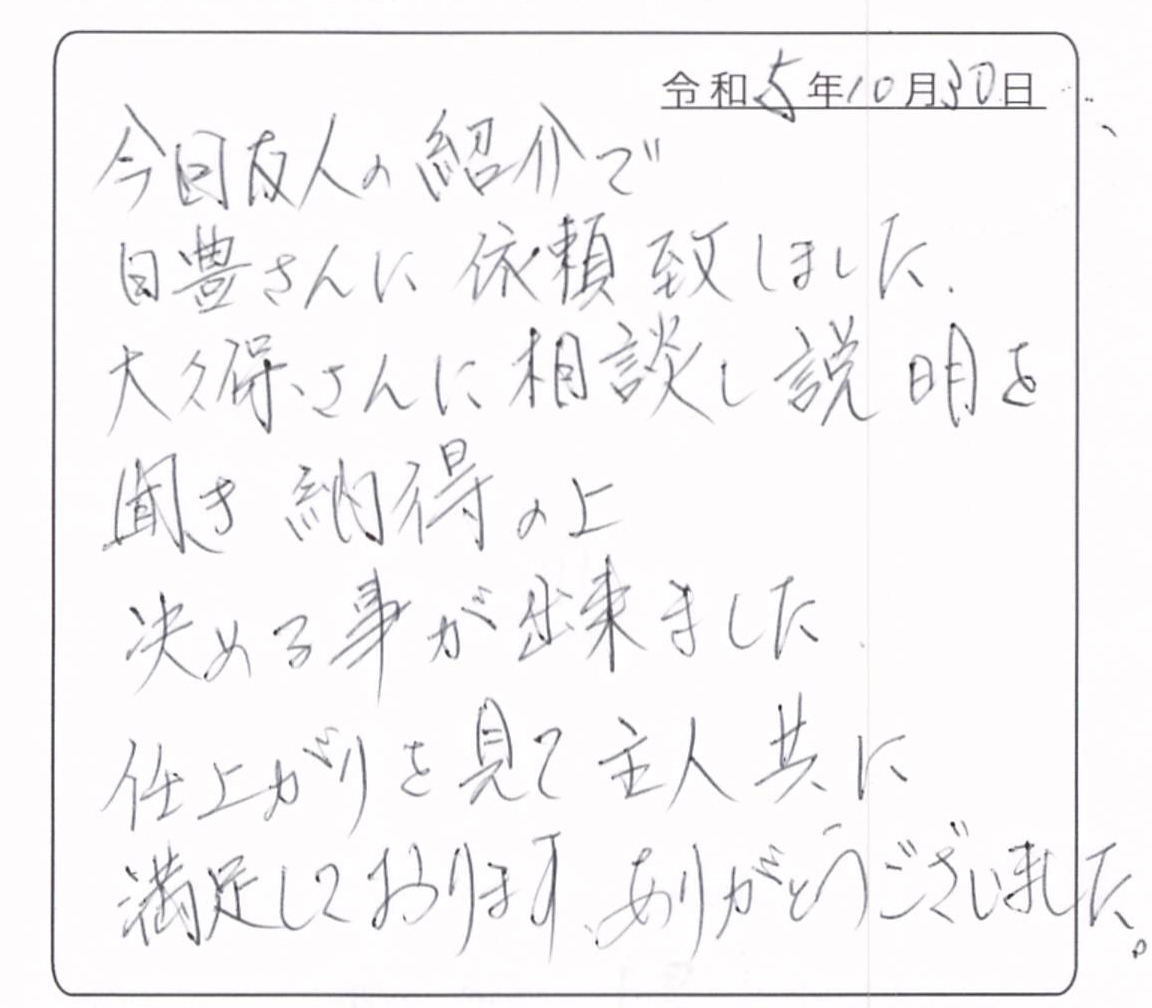 令和5年10月30日
今回友人の紹介で
日豊さんに依頼致しました.
大久保さんに相談し説明を
聞き納得の上
決める事が出来ました.
仕上がりを見て主人共に
満足しております、ありがとうございました。